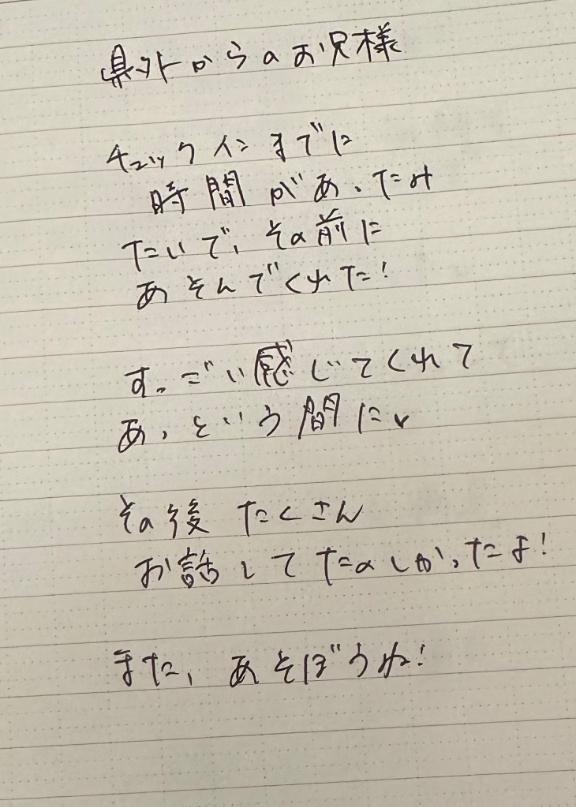 県外からのお兄様
チェックインまでに
時間があったみ
たいで、その前に
あそんでくれた!
すっごい感じてくれて
あっという間に
その後たくさん
お話してたのしかったよ!
また、あそぼうね!